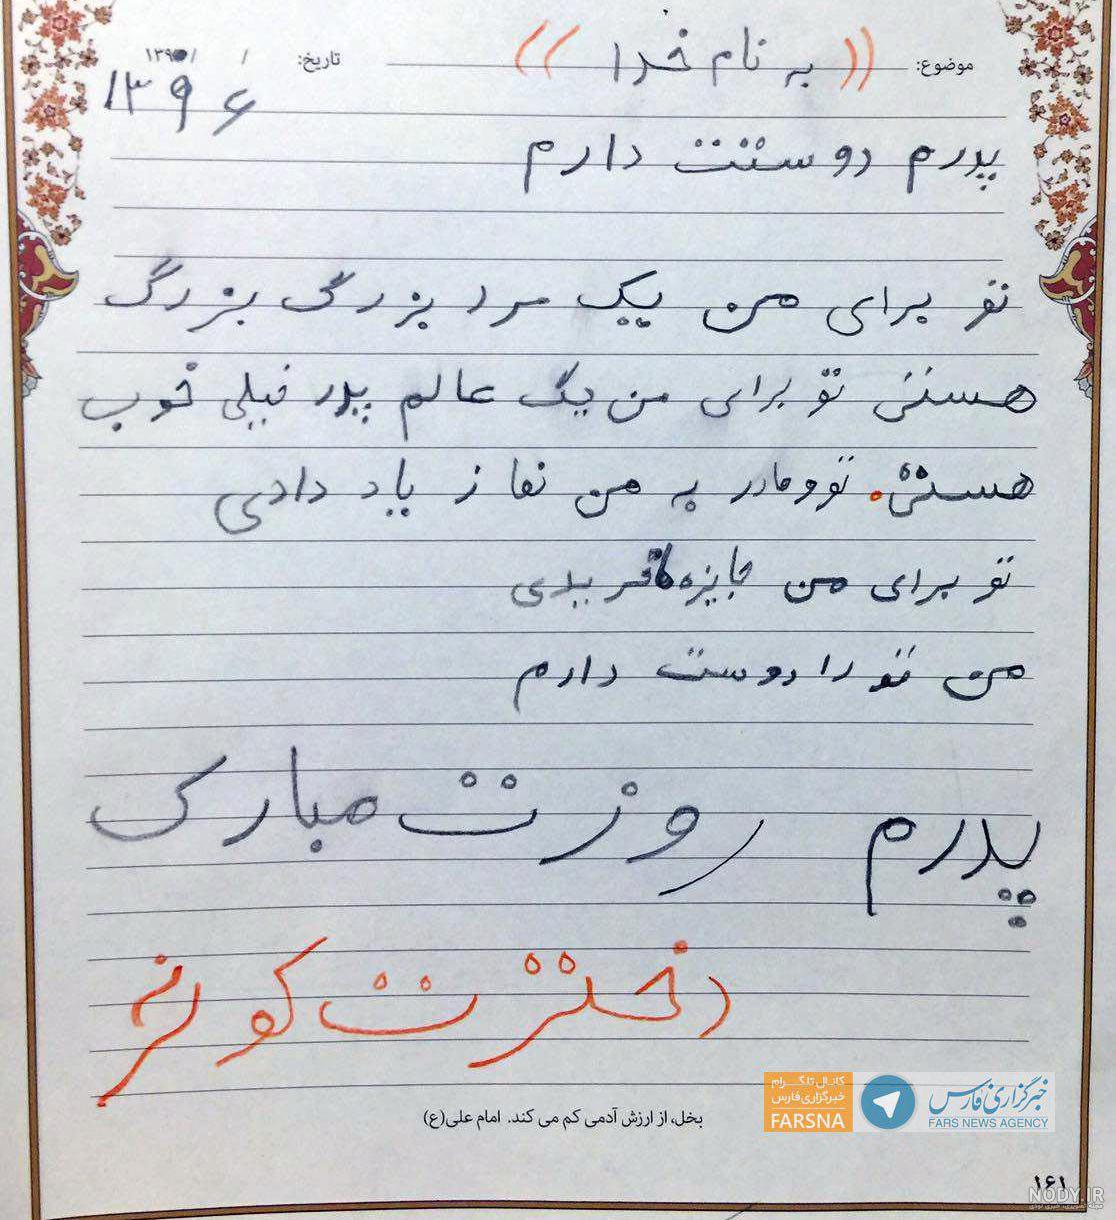 موضوع: (( به نام خدا )) تاریخ: / /
۱۳۹۶
پدرم دوستت دارم
تو برای من یک مرد بزرگ بزرگ
هستی تو برای من یک عالم پدر خیلی خوب
هستی. تو و مادر به من نماز یاد دادی
تو برای من جایزه خریدی
من تو را دوست دارم
پدرم روزت مبارک
دخترت کوثر
بخل، از ارزش آدمی کم می کند. امام علی(ع)
کانال تلگرام
خبرگزاری فارس
FARSNA
خبرگزاری فارس
FARS NEWS AGENCY
۱۶۱
NODY.IR